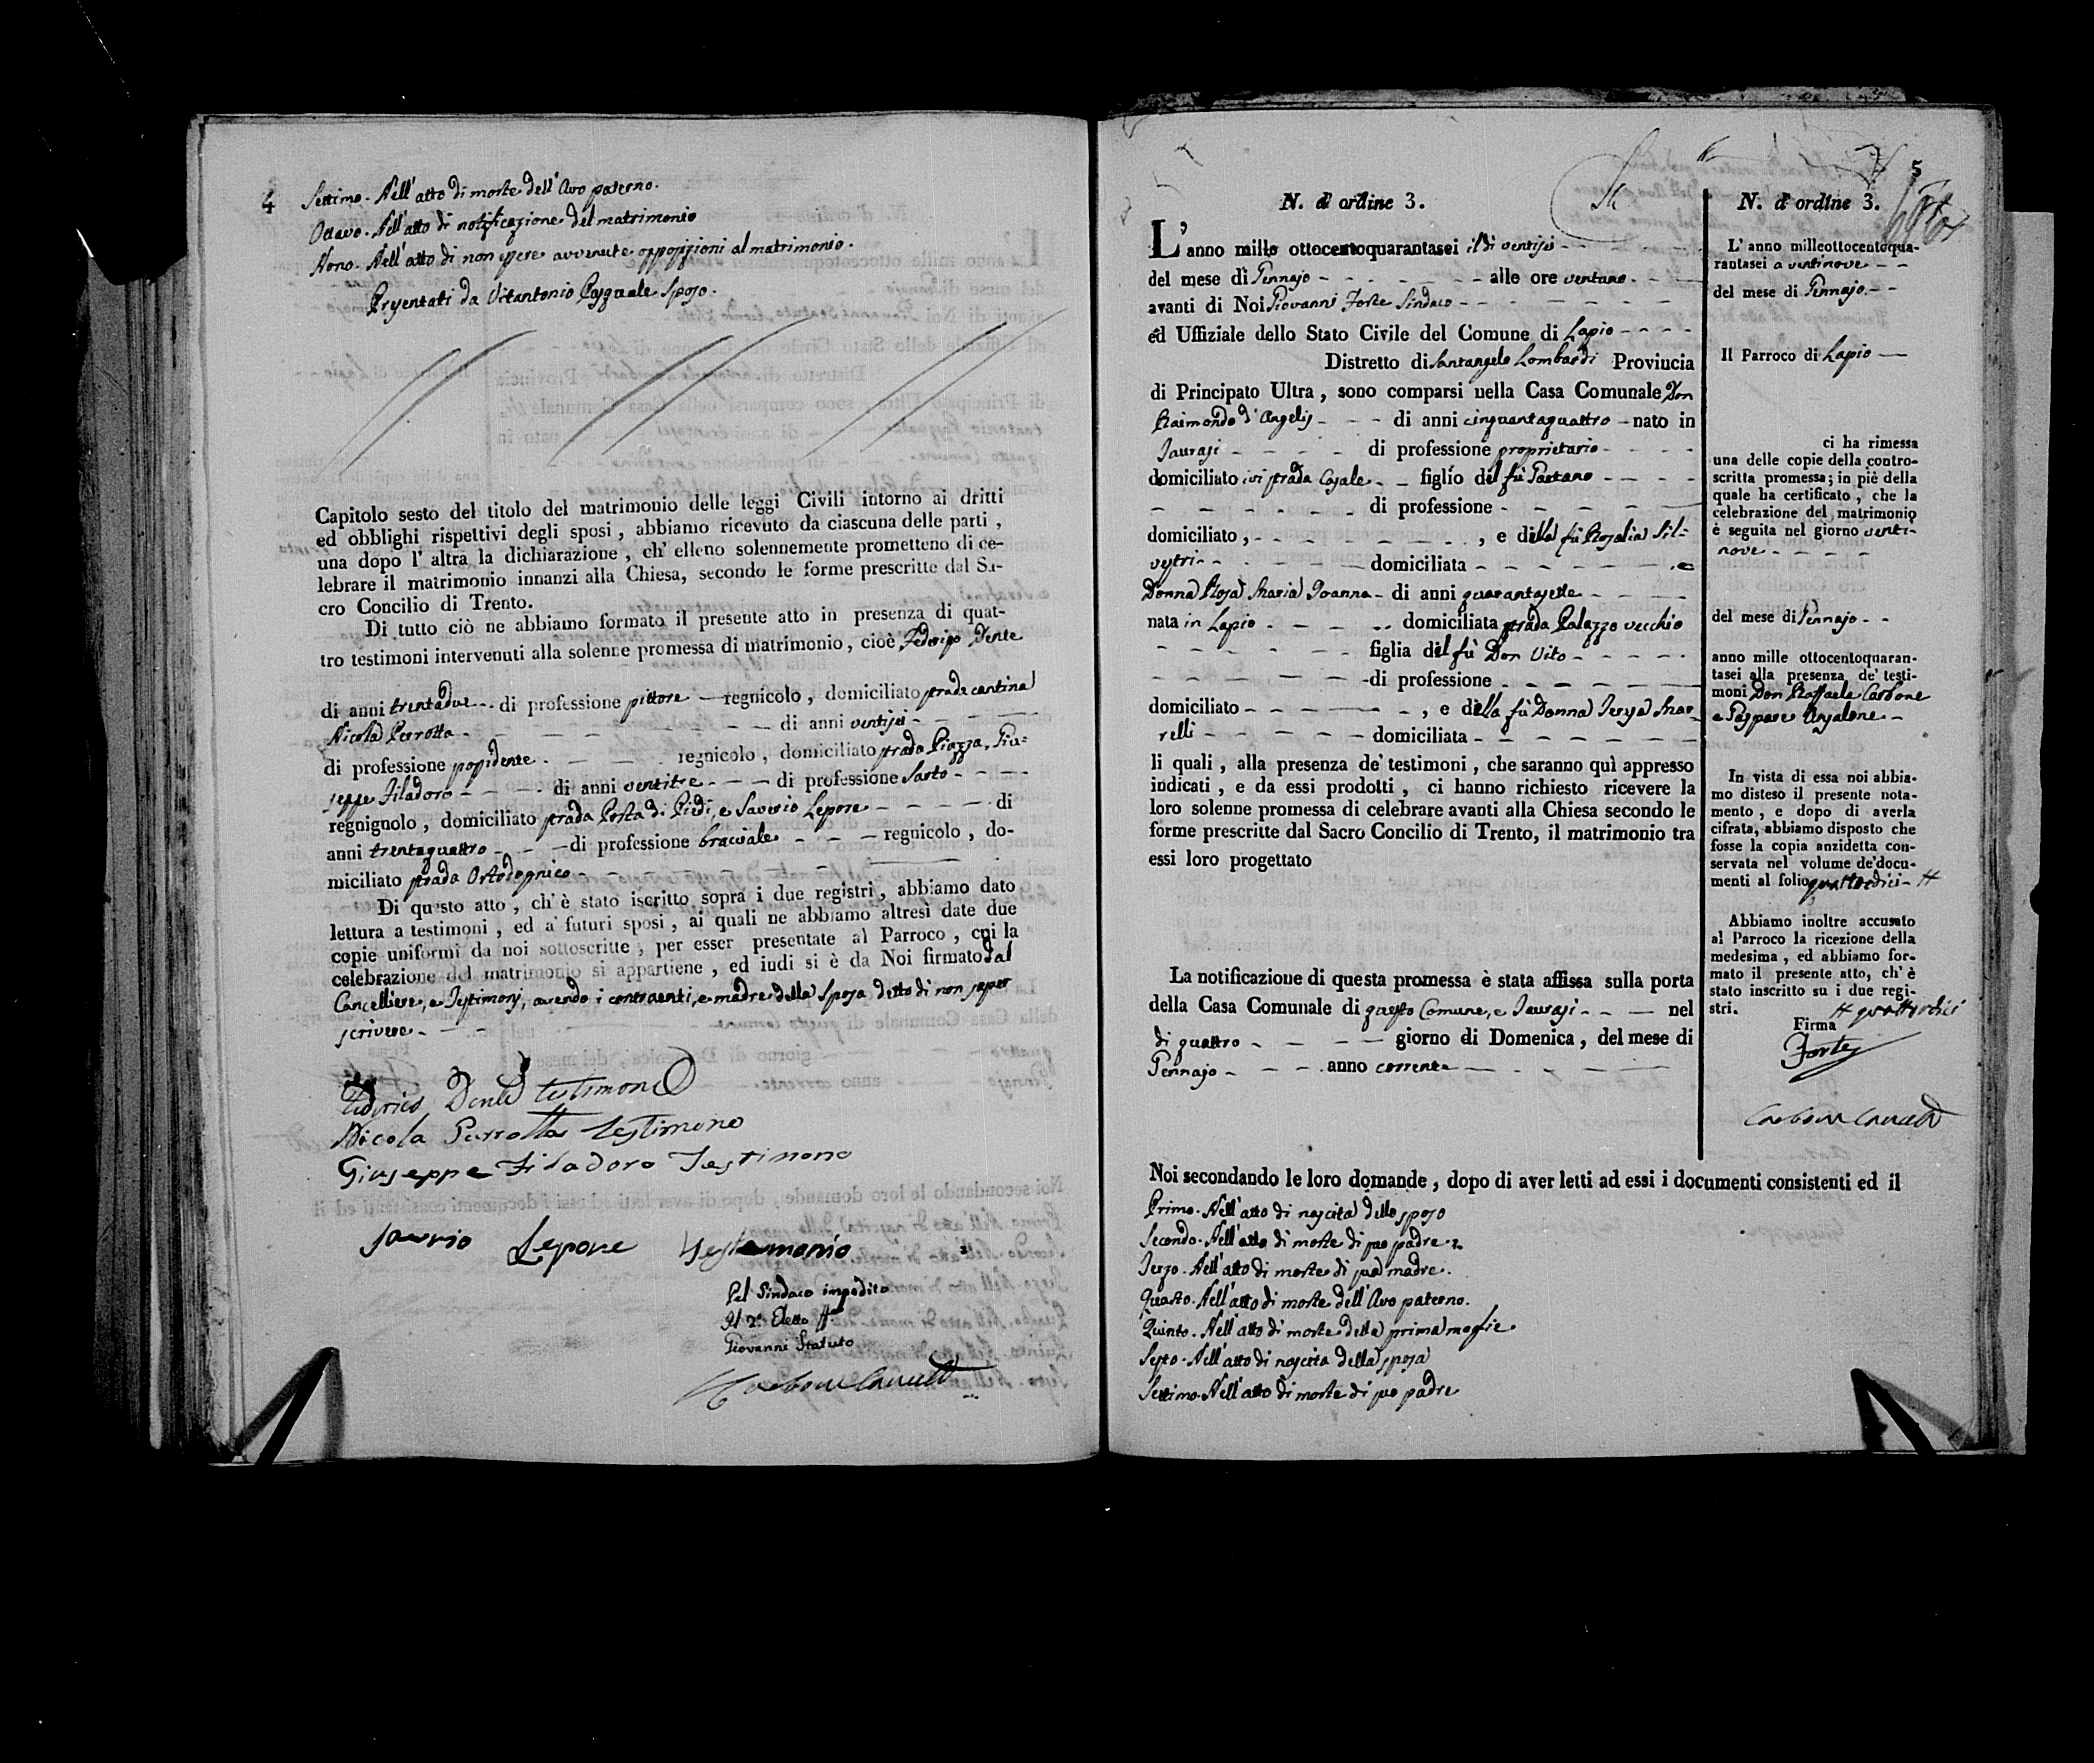 4
Settimo. Nell'atto di morte dell'Avo paterno.
Ottavo. Nell'atto di notificazione del matrimonio
Nono. Nell'atto di non essere avvenute opposizioni al matrimonio.
Presentati da Vitantonio Pasquale Sposo.
Capitolo sesto del titolo del matrimonio delle leggi Civili intorno ai dritti
ed obblighi rispettivi degli sposi, abbiamo ricevuto da ciascuna delle parti,
una dopo l'altra la dichiarazione, ch'elleno solennemente promettono di ce-
lebrare il matrimonio innanzi alla Chiesa, secondo le forme prescritte dal Sa-
cro Concilio di Trento.
Di tutto ciò ne abbiamo formato il presente atto in presenza di quat-
tro testimoni intervenuti alla solenne promessa di matrimonio, cioè Federigo Dente
di anni trentadue di professione pittore regnicolo, domiciliato strada cantina
Nicola Perrotta di anni ventisei
di professione possidente regnicolo, domiciliato strada Piazza, Giu-
seppe Filadoro di anni ventitre di professione Sarto
regnignolo, domiciliato strada Porta di Piedi, e Saverio Lepore di
anni trentaquattro di professione bracciale regnicolo, do-
miciliato strada
Di questo atto, ch'è stato iscritto sopra i due registri, abbiamo dato
lettura a testimoni, ed a' futuri sposi, ai quali ne abbiamo altresì date due
copie uniformi da noi sottoscritte, per esser presentate al Parroco, cui la
celebrazione del matrimonio si appartiene, ed indi si è da Noi firmato dal
Cancelliere, e Testimonj, avendo i contraenti, e madre della Sposa detto di non saper
scrivere
Federico Dente testimone
Nicola Perrotta testimono
Giuseppe Filadoro Testimono
Saverio Lepore testemonio
Pel Sindaco impedito
Il 2° Eletto ff
Giovanni Statuto
Carbone Cancell
5
N. d'ordine 3.
L'anno mille ottocentoquarantasei il dì ventisei
del mese di Gennajo alle ore ventuno
avanti di Noi Giovanni Forte Sindaco
ed Uffiziale dello Stato Civile del Comune di Lapio
Distretto di Santangelo Lombardi Provincia
di Principato Ultra, sono comparsi nella Casa Comunale Don
Raimondo d'Angelis di anni cinquantaquattro nato in
Taurasi di professione proprietario
domiciliato ivi strada Casale figlio del fù Gaetano
di professione
domiciliato, , e della fù Rosalia Sil-
vestri domiciliata e
Donna Rosa Maria Joanna di anni quarantasette
nata in Lapio domiciliata strada Palazzo vecchio
figlia del fù Don Vito
di professione
domiciliato , e della fù Donna Teresa Mar-
relli domiciliata
li quali, alla presenza de' testimoni, che saranno quì appresso
indicati, e da essi prodotti, ci hanno richiesto ricevere la
loro solenne promessa di celebrare avanti alla Chiesa secondo le
forme prescritte dal Sacro Concilio di Trento, il matrimonio tra
essi loro progettato
La notificazione di questa promessa è stata affissa sulla porta
della Casa Comunale di questo Comune, e Taurasi nel
di quattro giorno di Domenica, del mese di
Gennajo anno corrente
N. d'ordine 3.
L'anno milleottocentoqua-
rantasei a ventinove
del mese di Gennajo
Il Parroco di Lapio
ci ha rimessa
una delle copie della contro-
scritta promessa; in piè della
quale ha certificato, che la
celebrazione del matrimonio
è seguita nel giorno venti-
nove
del mese di Gennajo
anno mille ottocentoquaran-
tasei alla presenza de' testi-
moni Don Raffaele Carbone
e Gaspare Ansalone
In vista di essa noi abbia-
mo disteso il presente nota-
mento, e dopo di averla
cifrata, abbiamo disposto che
fosse la copia anzidetta con-
servata nel volume de'docu-
menti al folio quattordici
Abbiamo inoltre accusato
al Parroco la ricezione della
medesima, ed abbiamo for-
mato il presente atto, ch'è
stato inscritto su i due regi-
stri. quattordici
Firma
Forte
Carbone Cancell
Noi secondando le loro domande, dopo di aver letti ad essi i documenti consistenti ed il
Primo. Nell'atto di nascita dello sposo
Secondo. Nell'atto di morte di suo padre
Terzo. Nell'atto di morte di sua madre.
Quarto. Nell'atto di morte dell'Avo paterno.
Quinto. Nell'atto di morte della prima moglie
Sesto. Nell'atto di nascita della sposa
Settimo. Nell'atto di morte di suo padre